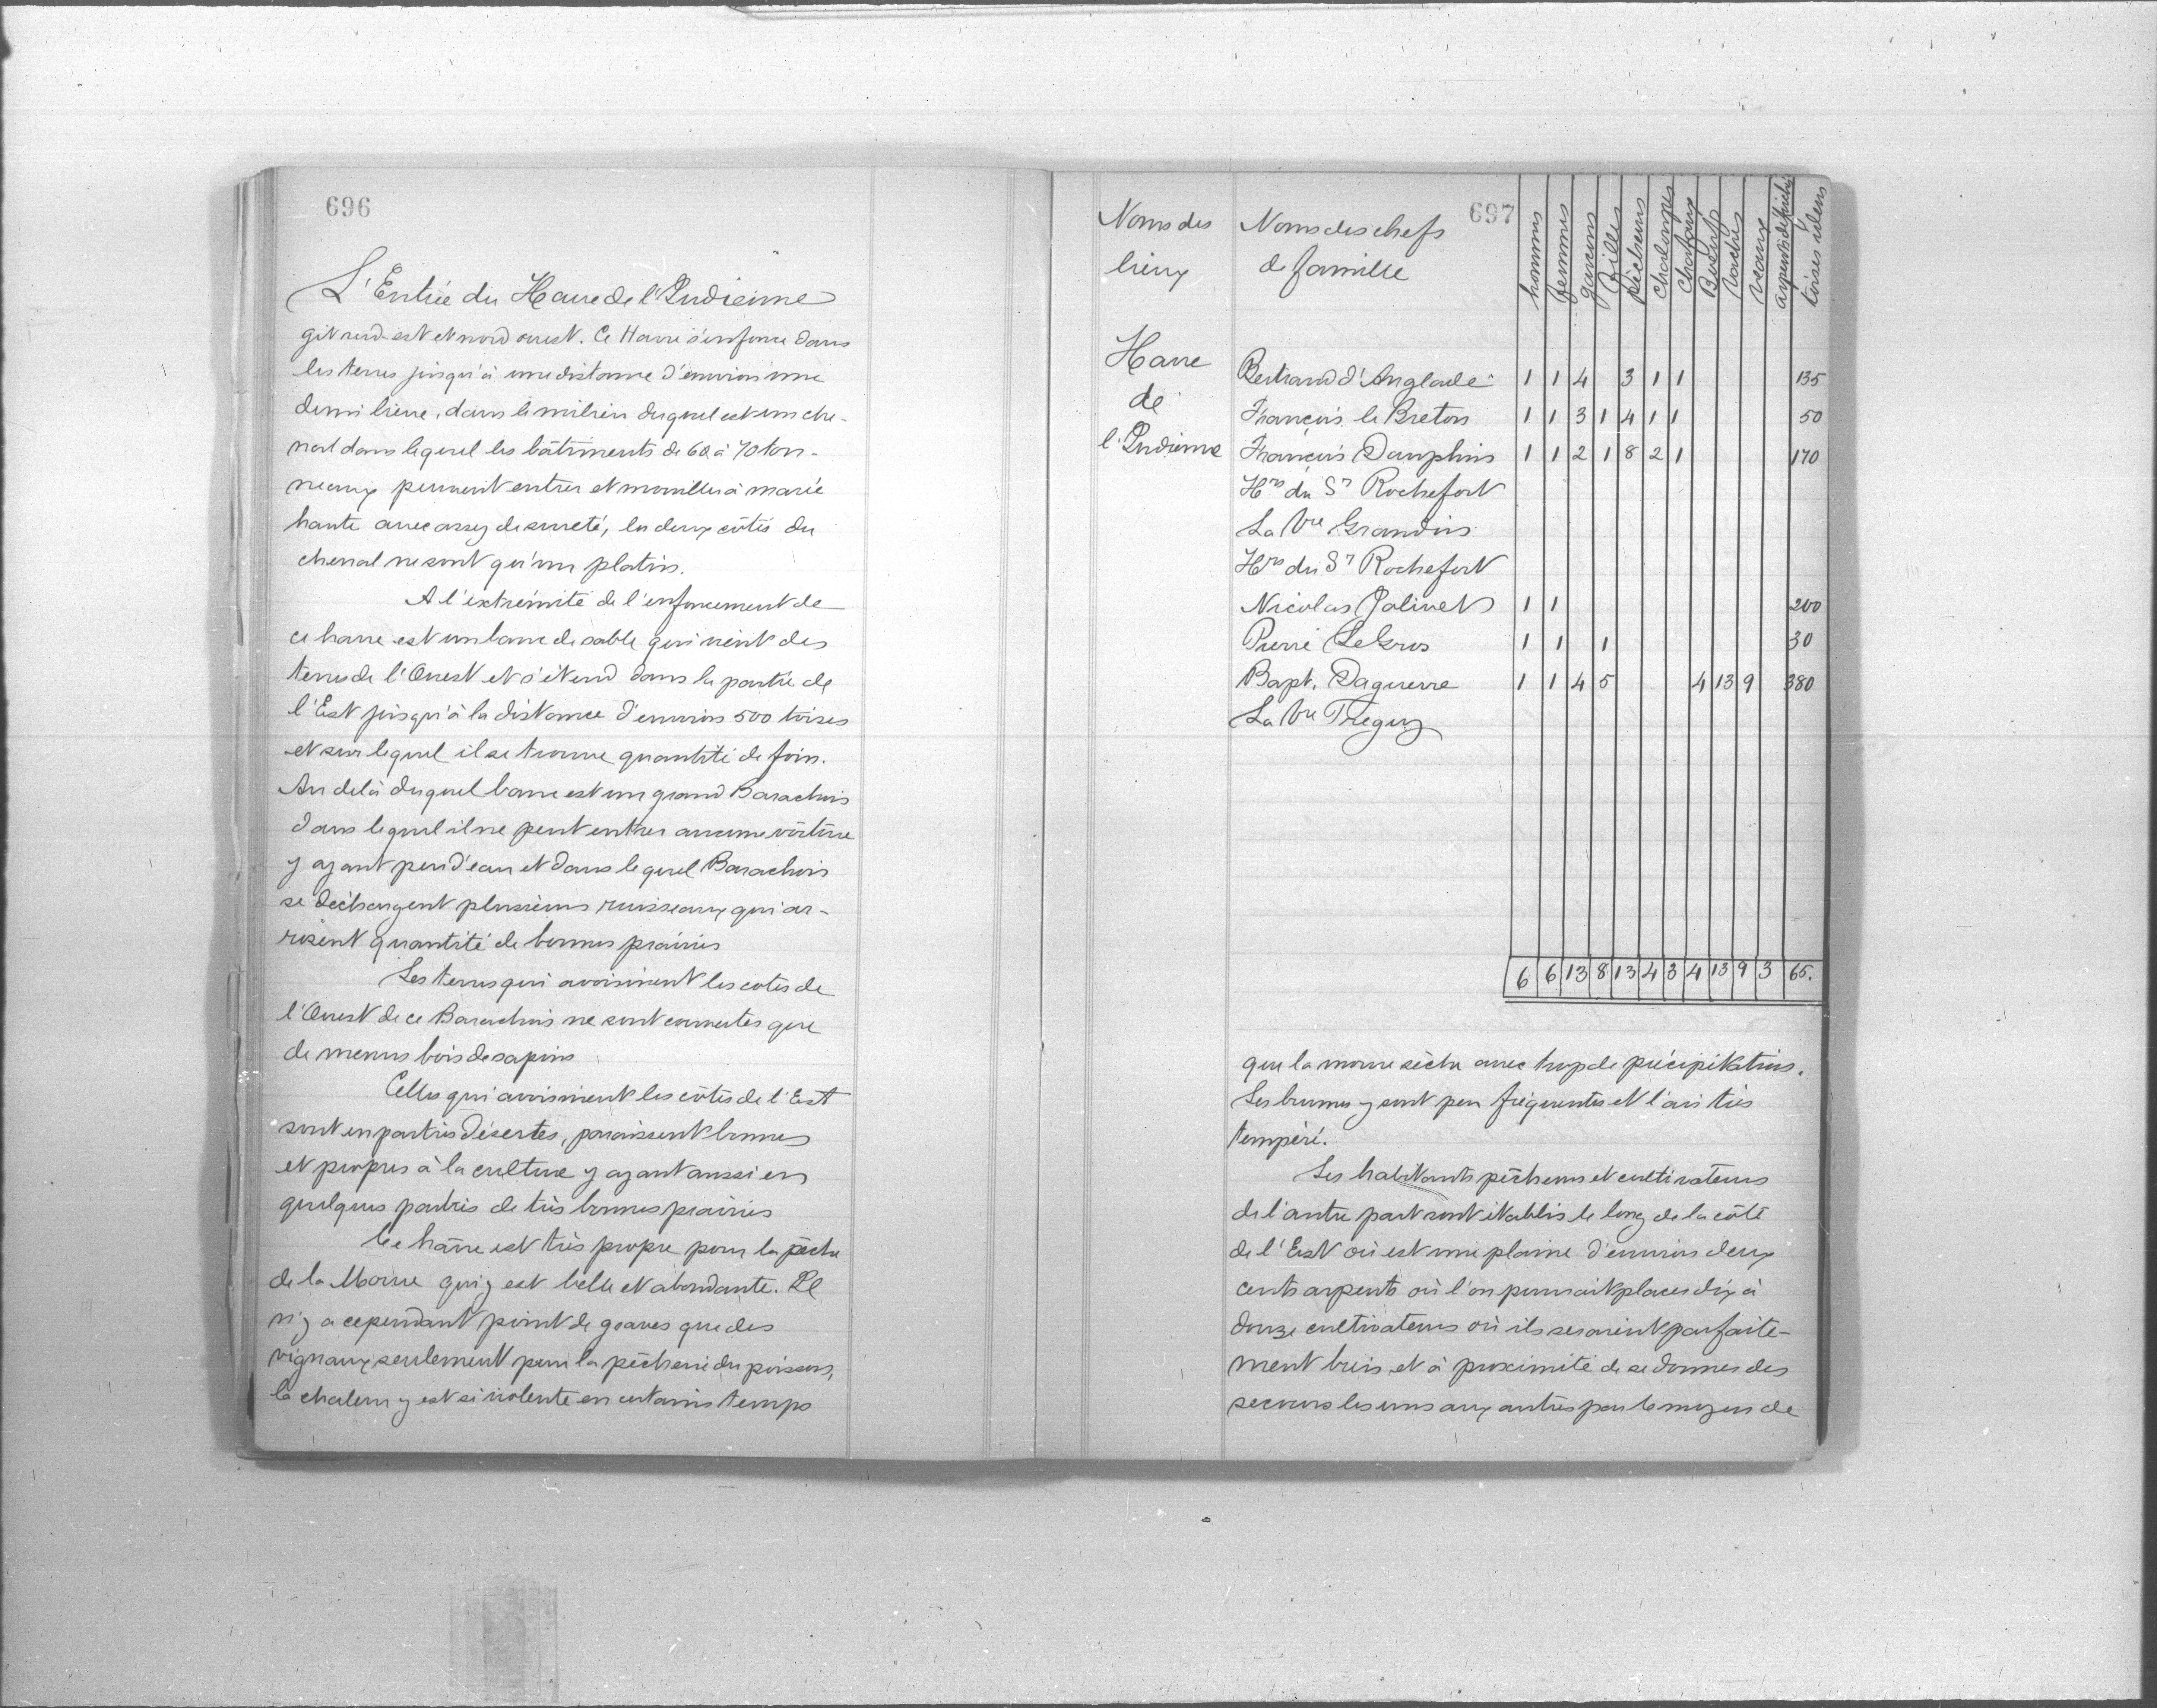 696
L'Entrée du Havre de l'Indienne
git sud-est et nord ouest. Ce Havre s'enfonce dans
les terres jusqu'à une distance d'environ une
demi lieue, dans le milieu duquel est un che-
nal dans lequel les bâtiments de 60 à 70 ton-
neaux peuvent entrer et mouiller à marée
haute avec assez de sureté, les deux côtés du
chenal ne sont qu'un platin.
A l'extrémité de l'enfoncement de
ce havre est un banc de sable qui vient des
terres de l'Ouest et s'étend dans la partie de
l'Est jusqu'à la distance d'environ 500 toises
et sur lequel il se trouve quantité de foin.
Au delà duquel banc est un grand Barachois
dans lequel il ne peut entrer aucune voiture
y ayant peu d'eau et dans lequel Barachois
se déchargent plusieurs ruisseaux qui ar-
rosent quantité de bonnes prairies
Les terres qui avoisinent les cotes de
l'Ouest de ce Barachois ne sont couvertes que
de menus bois de sapins
Celles qui avoisinent les côtes de l'Est
sont en parties désertes, paraissent bonnes
et propres à la culture y ayant aussi en
quelques parties de très bonnes prairies
Ce hâvre est très propre pour la pêche
de la Morue qui y est belle et abondante. Il
n'y a cependant point de graves que des
vignaux seulement pour la pêcherie du poisson,
la chaleur y est si violente en certains temps
697
Noms des lieux	Noms des chefs de famille	hommes	femmes	garçons	filles	pêcheurs	chaloupes	Chafaux	Boeufs	Vaches	Veaux	arpents défrichés	toises idem
Havre de l'Indienne
Bertrand d'Anglade	1	1	4		3	1	1					135
François le Breton	1	1	3	1	4	1	1					50
François Dauphin	1	1	2	1	8	2	1					170
Hrs du Sr Rochefort
La Vve Grandin
Hrs du Sr Rochefort
Nicolas Jolivet	1	1										200
Pierre LeGros	1	1		1								30
Bapt. Daguerre	1	1	4	5				4	13	9		380
La Vve Treguy
6	6	13	8	13	4	3	4	13	9	3	65.
que la morue sèche avec trop de précipitation.
Les brumes y sont peu fréquentes et l'air très
tempéré.
Les habitants pêcheurs et cultivateurs
de l'autre part sont établis le long de la côte
de l'Est où est une plaine d'environ deux
cents arpents où l'on pourrait placer dix à
douze cultivateurs où ils seraient parfaite-
ment bien et à proximité de se donner des
secours les uns aux autres par le moyen de